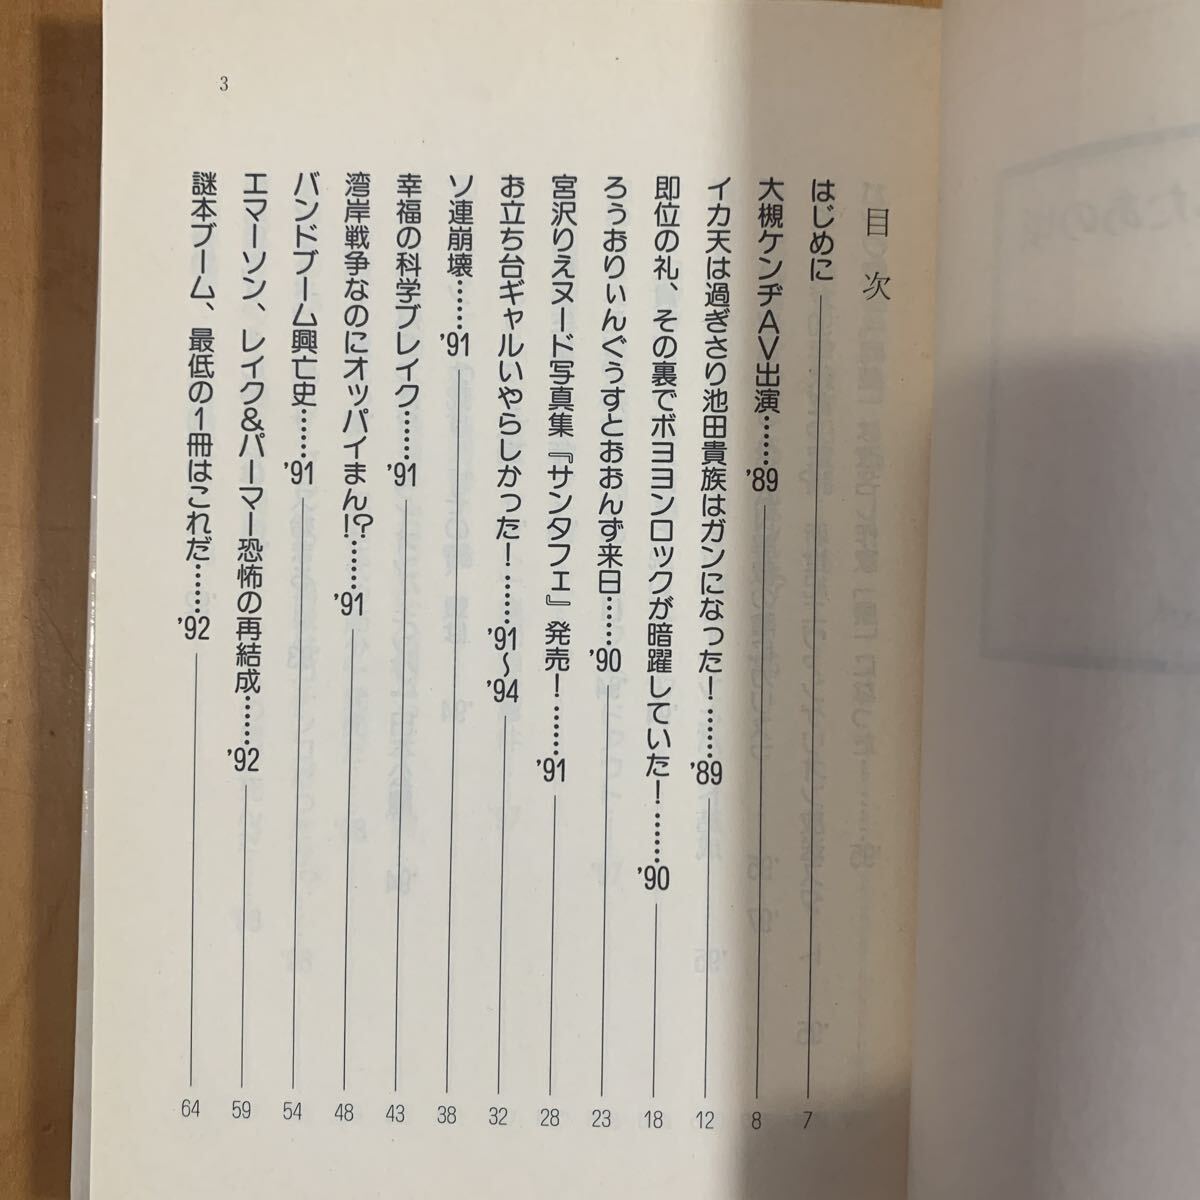 3
目次
はじめに 7
大槻ケンヂAV出演……'89 8
イカ天は過ぎさり池田貴族はガンになった!……'89 12
即位の礼、その裏でボヨヨンロックが暗躍していた!……'90 18
ろぅおりぃんぐぅすとおおんず来日……'90 23
宮沢りえヌード写真集『サンタフェ』発売!……'91 28
お立ち台ギャルいやらしかった!……'91〜'94 32
ソ連崩壊……'91 38
幸福の科学ブレイク……'91 43
湾岸戦争なのにオッパイまん!?……'91 48
バンドブーム興亡史……'91 54
エマーソン、レイク&パーマー恐怖の再結成……'92 59
謎本ブーム、最低の1冊はこれだ……'92 64